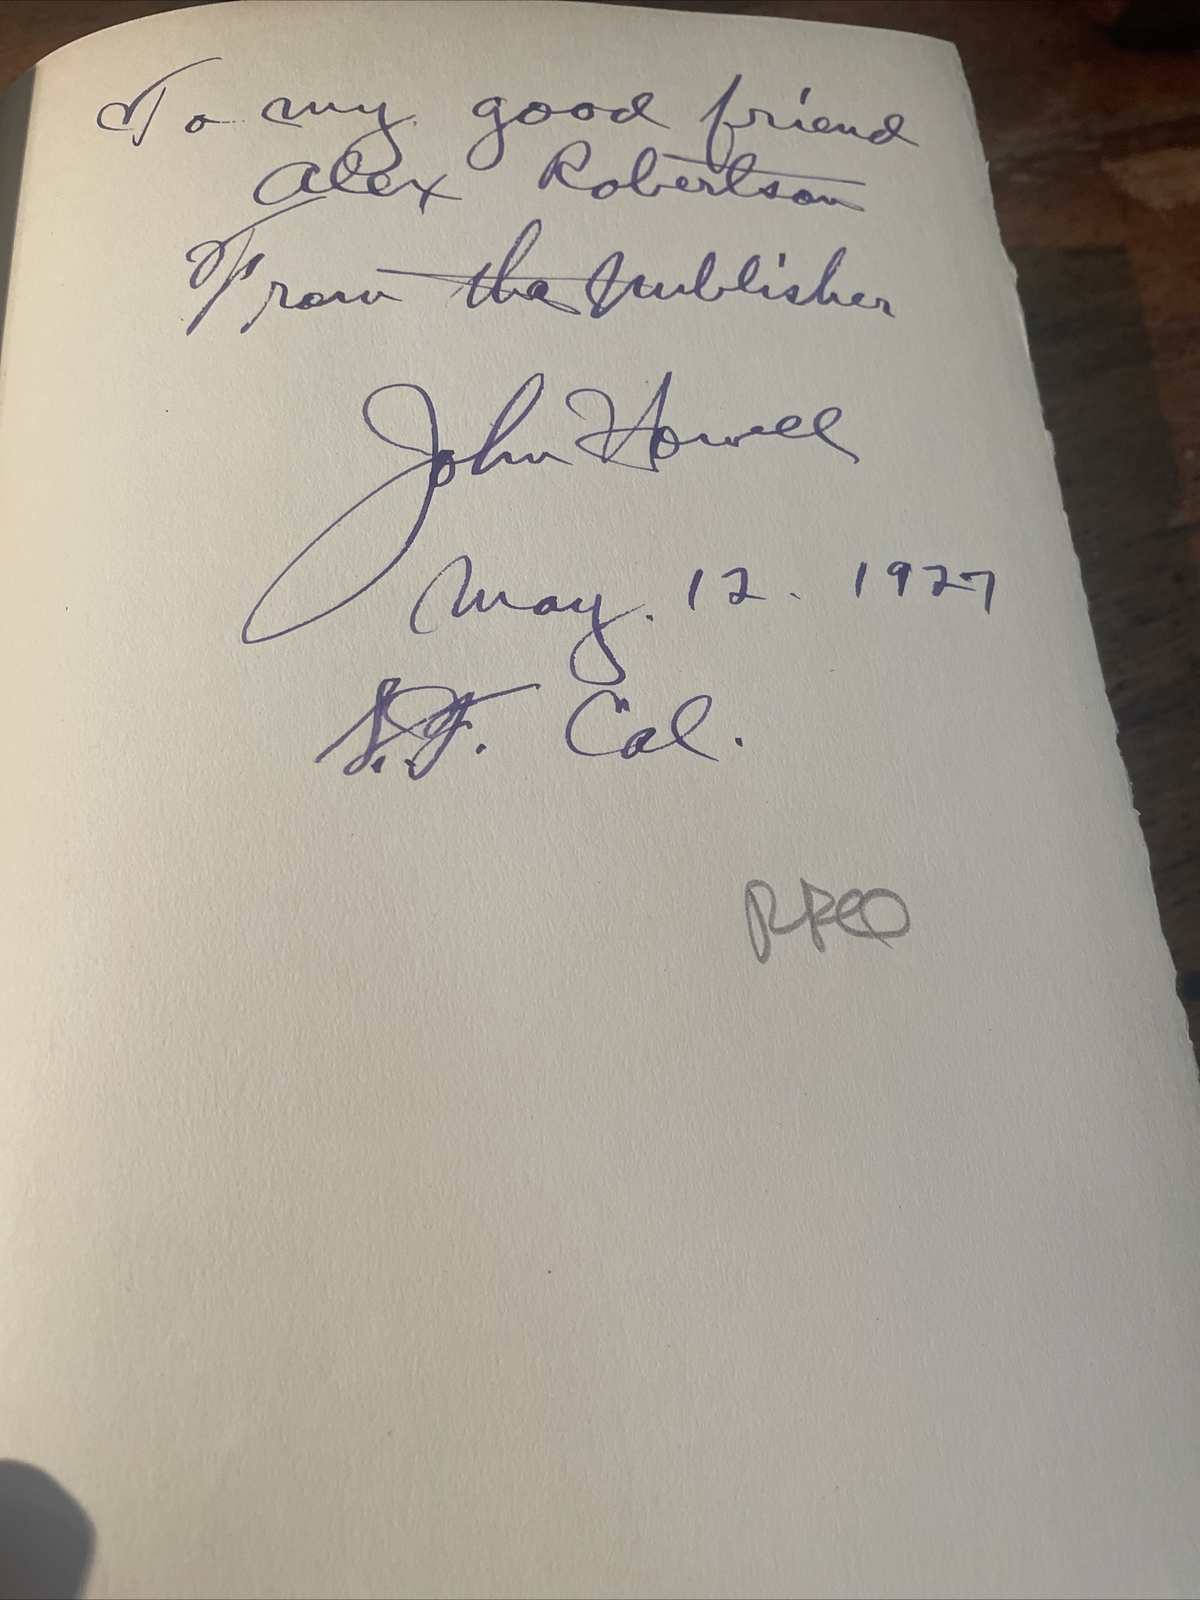 To my good friend
Alex Robertson
From the publisher
John Howell
May. 12. 1927
S.F. Cal.